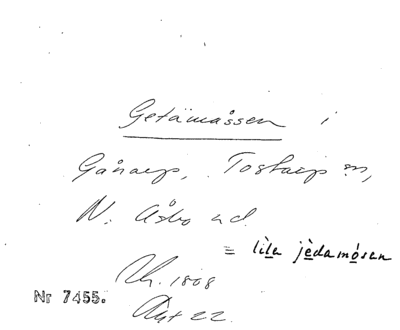 Getåmåssen i
Gånarp, Tostarps sn,
N. Åsbo hd.
= lìla jèdamósen
Uh. 1808
Nr 7455.
Akt 22.